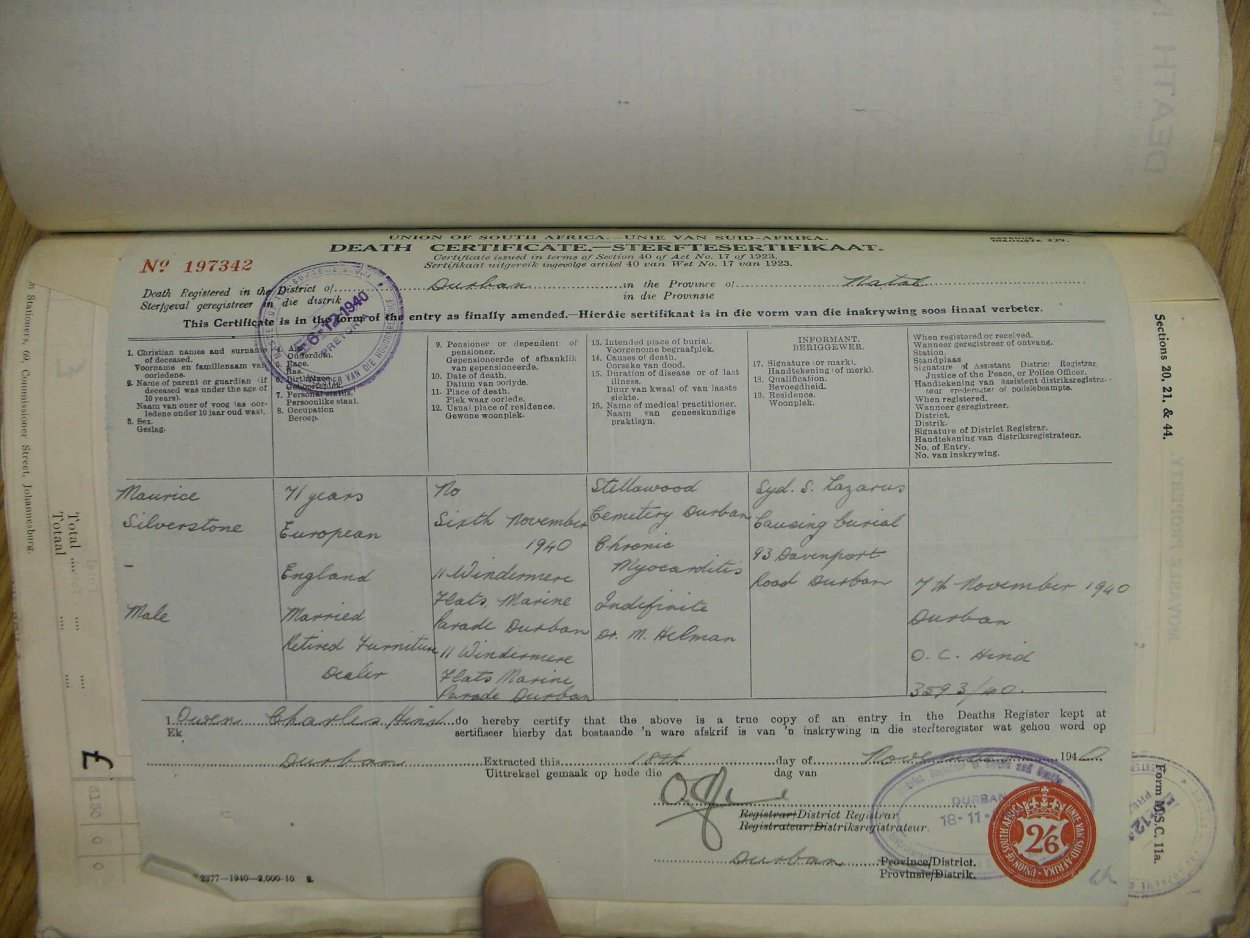 UNION OF SOUTH AFRICA.—UNIE VAN SUID-AFRIKA.
DEATH CERTIFICATE.—STERFTESERTIFIKAAT.
Certificate issued in terms of Section 40 of Act No. 17 of 1923.
Sertifikaat uitgereik ingevolge artikel 40 van Wet No. 17 van 1923.
REVENUE
No 197342
Death Registered in the District of Durban in the Province of Natal
Sterfgeval geregistreer in die distrik in die Provinsie
This Certificate is in the form of the entry as finally amended.—Hierdie sertifikaat is in die vorm van die inskrywing soos finaal verbeter.
-6-12-1940
PRETORIA
1. Christian names and surname of deceased.
Voorname en familienaam van oorledene.
2. Name of parent or guardian (if
deceased was under the age of
10 years).
Naam van ouer of voog (as oor-
ledene onder 10 jaar oud was).
3. Sex.
Geslag.
4. Age.
Ouderdom.
5. Race.
Ras.
6. Birthplace.
Geboorteplek.
7. Personal status.
Persoonlike staat.
8. Occupation
Beroep.
9. Pensioner or dependent of
pensioner.
Gepensioeneerde of afhanklik
van gepensioeneerde.
10. Date of death.
Datum van oorlyde.
11. Place of death.
Plek waar oorlede.
12. Usual place of residence.
Gewone woonplek.
13. Intended place of burial.
Voorgenome begraafplek.
14. Causes of death.
Oorsake van dood.
15. Duration of disease or of last
illness.
Duur van kwaal of van laaste
siekte.
16. Name of medical practitioner.
Naam van geneeskundige
praktisyn.
INFORMANT.
BERIGGEWER.
17. Signature (or mark).
Handtekening (of merk).
18. Qualification.
Bevoegdheid.
19. Residence.
Woonplek.
When registered or received.
Wanneer geregistreer of ontvang.
Station.
Standplaas
Signature of Assistant District Registrar
Justice of the Peace, or Police Officer.
Handtekening van Assistent distriksregistra-
When registered.
Wanneer geregistreer.
District.
Distrik.
Signature of District Registrar.
Handtekening van distriksregistrateur.
No. of Entry.
No. van inskrywing.
Maurice
Silverstone
–
Male
71 years
European
England
Married
Retired Furniture
Dealer
No
Sixth November
1940
11 Windermere
Flats Marine
Parade Durban
11 Windermere
Flats Marine
Parade Durban
Stellawood
Cemetery Durban
Chronic
Myocarditis
Indefinite
Dr. M. Helman
Sgd. S. Lazarus
Causing burial
93 Davenport
Road Durban
7th November 1940
Durban
O. C. Hind
3593/40.
I, Owen Charles Hind do hereby certify that the above is a true copy of an entry in the Deaths Register kept at
Ek sertifiseer hierby dat bostaande 'n ware afskrif is van 'n inskrywing in die sterfteregister wat gehou word op
Durban Extracted this 18th day of November 1940
Uittreksel gemaak op hede die dag van
Registrar/District Registrar
Registrateur/Distriksregistrateur.
Durban Province/District.
Provinsie/Distrik.
DURBAN
18-11-
UNION OF SOUTH AFRICA
UNIE VAN SUID-AFRIKA
2/6
2377—1940—2,000-10 S.
Stationers, 60 Commissioner Street, Johannesburg.
Total
Totaal
7
6150 0 0
Sections 20, 21, & 44.
Form M.S.C. 11a.